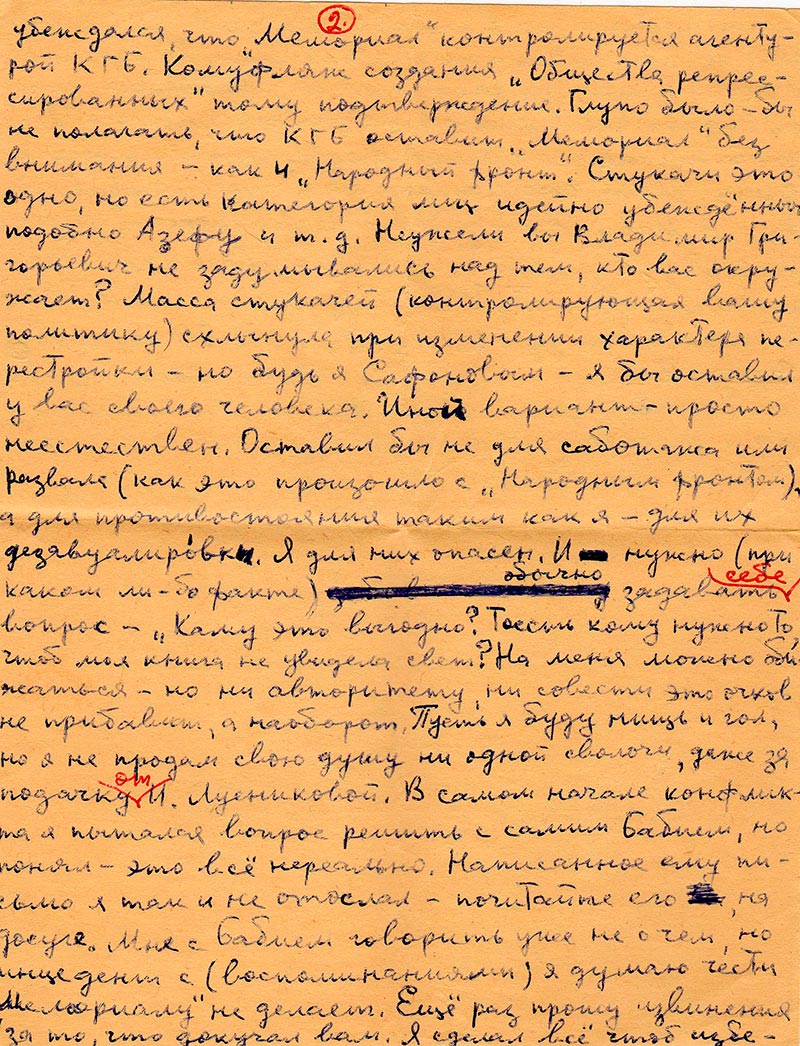 2.
убеждался, что "Мемориал" контролируется агенту-
рой КГБ. Кому фляж создания "Общества репрес-
сированных" тому подтверждение. Глупо было-бы
не полагать, что КГБ оставит "Мемориал" без
внимания - как и "Народный фронт". Стукачи это
одно, но есть категория лиц идейно убеждённых
подобно Азефу и т.д. Неужели вы Владимир Гри-
горьевич не задумывались над тем, кто вас окру-
жает? Масса стукачей (контролирующая вашу
политику) схлынула при изменении характера пе-
рестройки - но будь я Сафоновым - я бы оставил
у вас своего человека. Иной вариант - просто
неестествен. Оставил бы не для саботажа или
развала (как это произошло с "Народным фронтом),
а для противостояния таким как я - для их
дезавуалировки. Я для них опасен. И нужно (при
каком ли-бо факте) обычно себе задавать
вопрос - "Кому это выгодно? Тоесть кому нужно то,
чтоб моя книга не увидела свет? На меня можно оби
жаться - но ни авторитету, ни совести это очков
не прибавит, а наоборот. Пусть я буду нищ и гол,
но я не продам свою душу ни одной сволочи, даже за
подачку от И. Лусниковой. В самом начале конфлик-
та я пытался вопрос решить с самим Бабием, но
понял - это всё нереально. Написанное ему пи-
сьмо я так и не отослал - почитайте его, на
досуге. Мне с Бабием говорить уже не о чем, но
инцедент с (воспоминаниями) я думаю чести
"Мемориалу" не делает. Ещё раз прошу извинения
за то, что докучал вам. Я сделал всё чтоб избе-